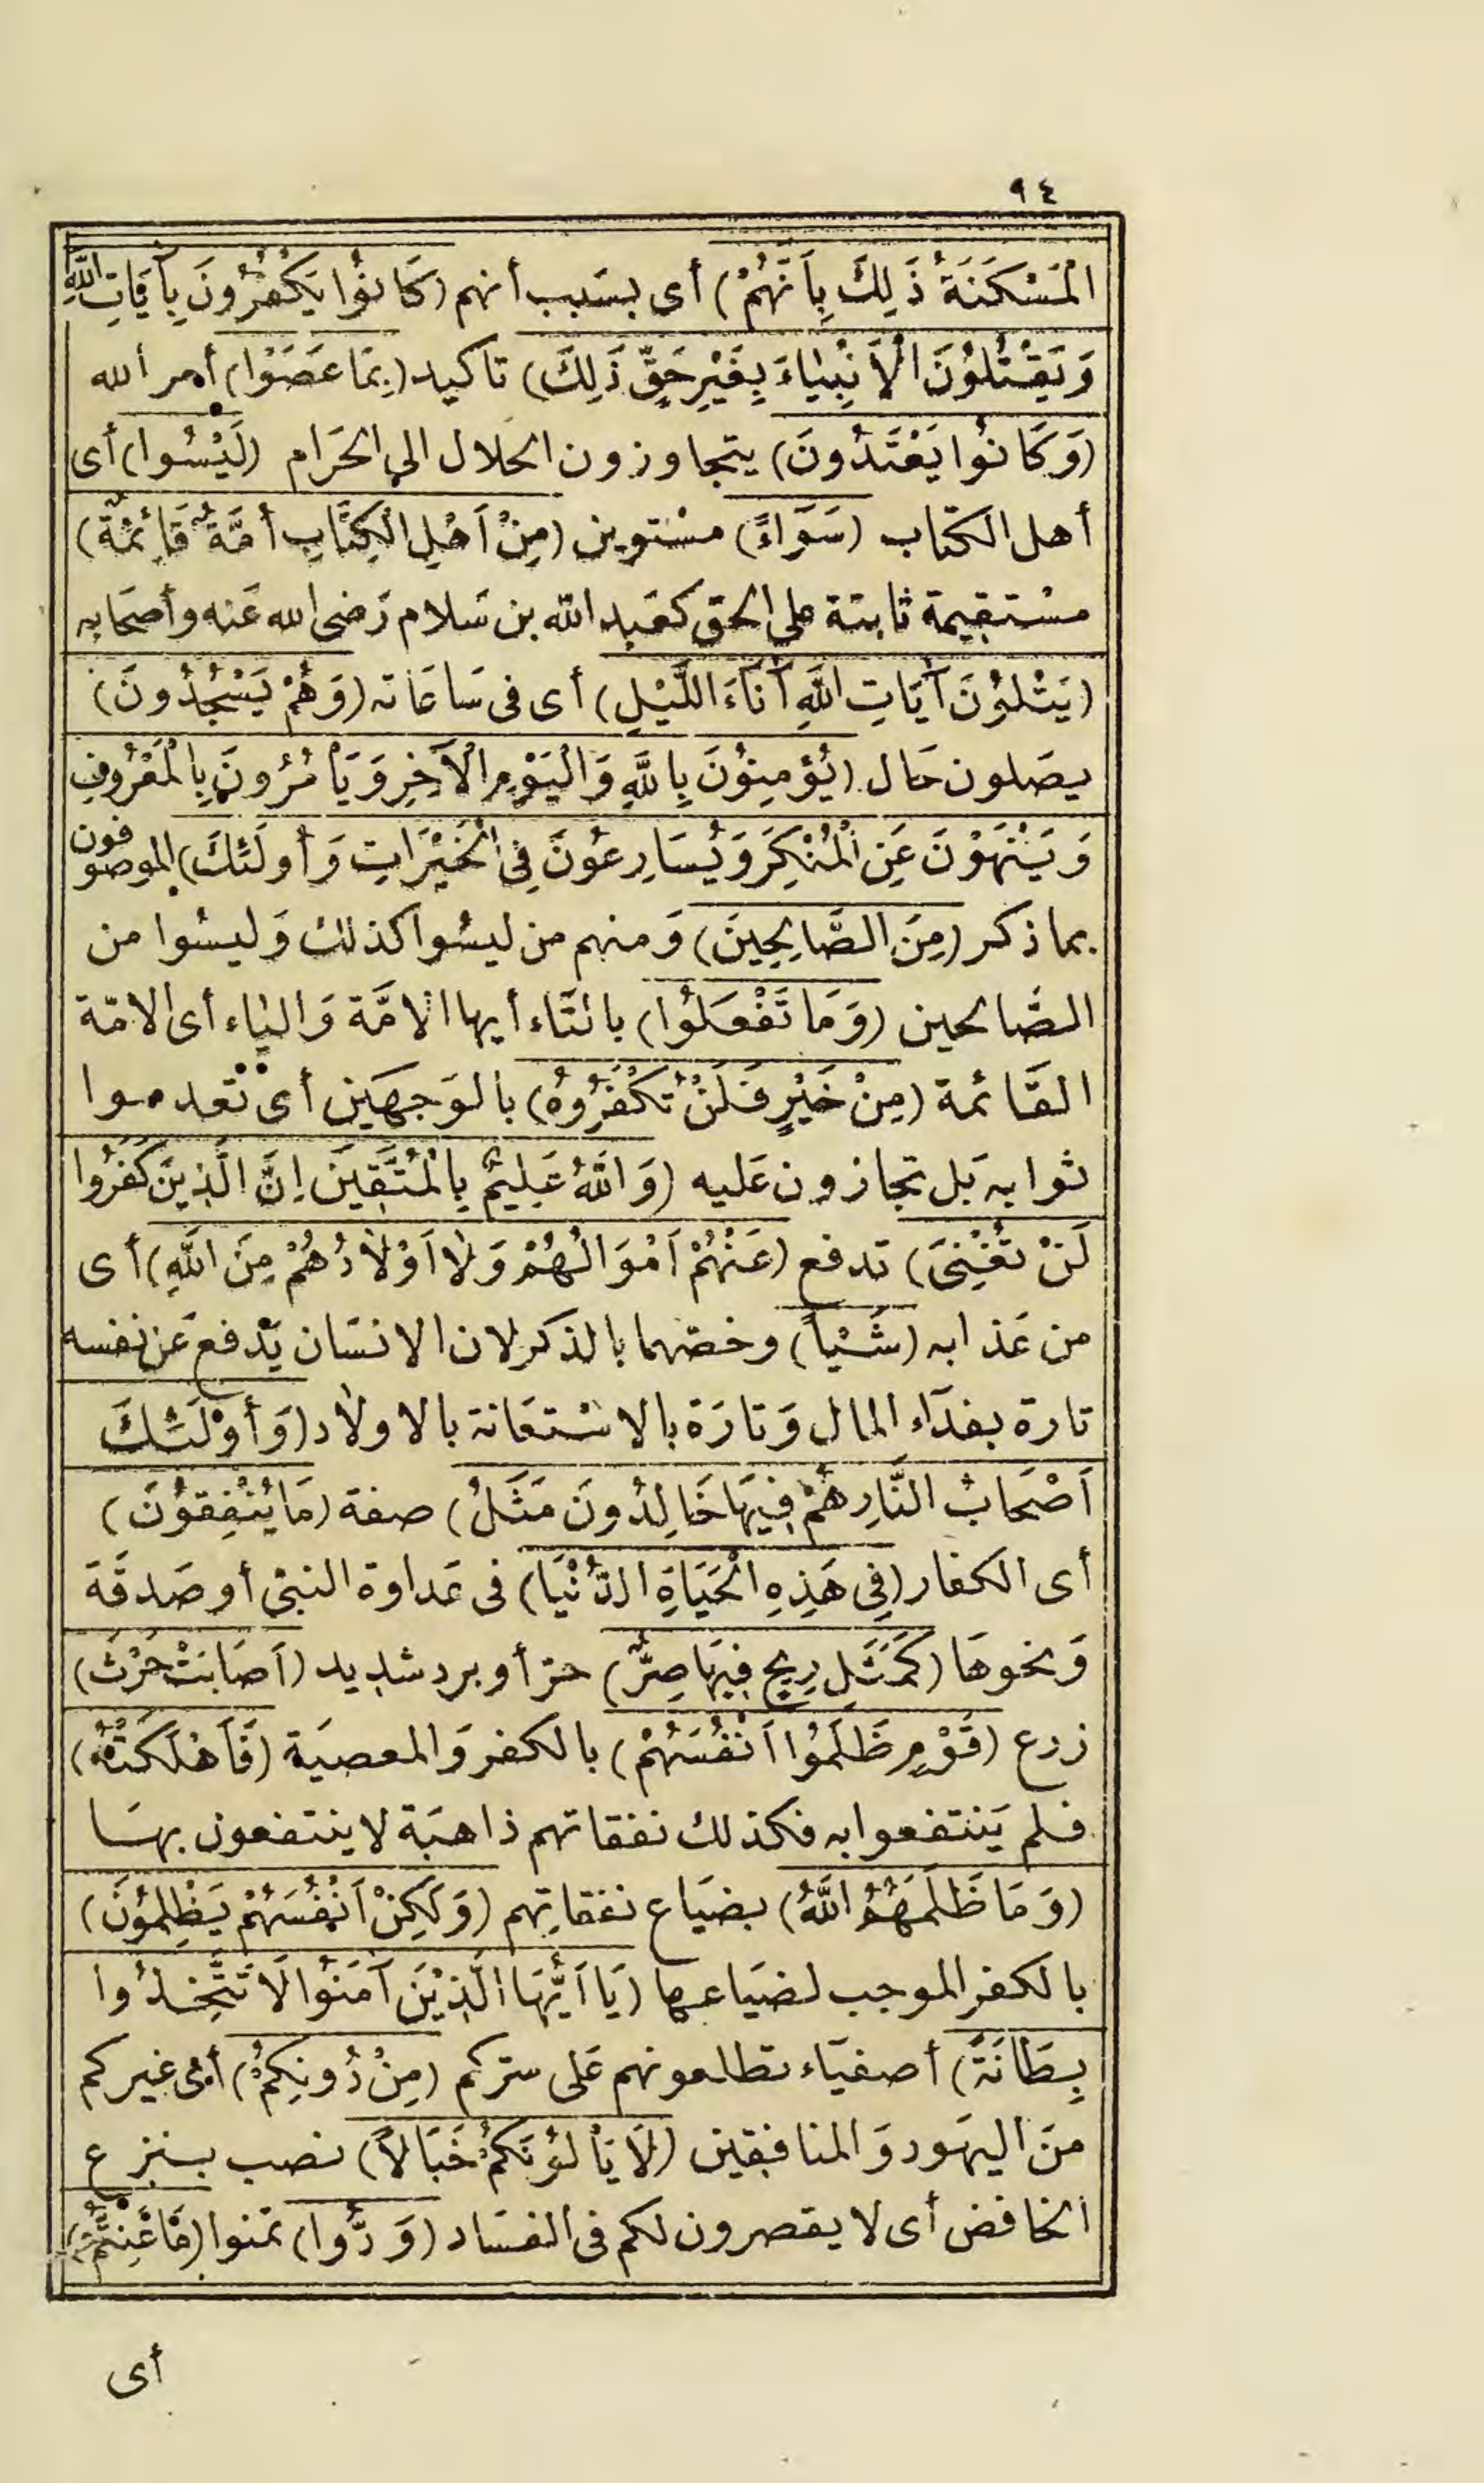 ٩٤
الْمَسْكَنَةُ ذَلِكَ بِأَنَّهُمْ) أى بسَبب أنهم (كَانُوا يَكْفُرُونَ بِآيَاتِ اللَّهِ
وَيَقْتُلُونَ الْأَنْبِيَاءَ بِغَيْرِ حَقٍّ ذَلِكَ) تاكيد (بِمَا عَصَوْا) أمر الله
(وَكَانُوا يَعْتَدُونَ) يتجاوزون الحلال الى الحَرام (لَيْسُوا) أى
أهل الكتاب (سَوَآءً) مسْتوين (مِنْ أَهْلِ الْكِتَابِ أُمَّةٌ قَائِمَةٌ)
مسْتقيمة ثابتة على الحق كعَبد الله بن سَلام رَضى الله عَنه وأصحَابه
(يَتْلُونَ آيَاتِ اللَّهِ آنَآءَ اللَّيْلِ) أى فى سَاعَاته (وَهُمْ يَسْجُدُونَ)
يصَلون حَال (يُؤْمِنُونَ بِاللَّهِ وَالْيَوْمِ الْآخِرِ وَيَأْمُرُونَ بِالْمَعْرُوفِ
وَيَنْهَوْنَ عَنِ الْمُنْكَرِ وَيُسَارِعُونَ فِى الْخَيْرَاتِ وَأُولَئِكَ) الموصوفون
بما ذكر (مِنَ الصَّالِحِينَ) وَمنهم من ليسُوا كذلك وَليسُوا من
الصَّالحين (وَمَا تَفْعَلُوا) بالتَّاء أيها الامَّة وَاليَاء أى الامّة
القَائمة (مِنْ خَيْرٍ فَلَنْ تُكْفَرُوهُ) بالوَجهَين أى تعدموا
ثوابه بَل تجازون عَليه (وَاللَّهُ عَلِيمٌ بِالْمُتَّقِينَ إِنَّ الَّذِينَ كَفَرُوا
لَنْ تُغْنِىَ) تدفع (عَنْهُمْ أَمْوَالُهُمْ وَلَا أَوْلَادُهُمْ مِنَ اللَّهِ) أى
من عَذابه (شَيْاً) وخصّهما بالذكر لان الانسَان يَدفع عَن نفسه
تارة بفدَآء المال وَتارَة بالاسْتعَانة بالاولاد (وَأُوْلَئِكَ
أَصْحَابُ النَّارِ هُمْ فِيهَا خَالِدُونَ مَثَلُ) صفة (مَا يُنْفِقُونَ)
أى الكفار (فِى هَذِهِ الْحَيَاةِ الدُّنْيَا) فى عَداوة النبىّ أو صَدقَة
وَنحوهَا (كَمَثَلِ رِيحٍ فِيهَا صِرٌّ) حرّ أو برد شديد (أَصَابَتْ حَرْثَ)
زرع (قَوْمٍ ظَلَمُوا أَنْفُسَهُمْ) بالكفر وَالمعصيَة (فَأَهْلَكَتْهُ)
فلم يَنتفعوا به فكذلك نفقاتهم ذاهبَة لا ينتفعون بهَا
(وَمَا ظَلَمَهُمُ اللَّهُ) بضيَاع نفقاتِهم (وَلَكِنْ أَنْفُسَهُمْ يَظْلِمُونَ)
بالكفر الموجب لضيَاعها (يَا أَيُّهَا الَّذِيْنَ آمَنُوا لَا تَتَّخِذُوا
بِطَانَةً) أصفيَاء تطلعونهم عَلى سرّكم (مِنْ دُونِكُمْ) أى غيركم
منَ اليهَود وَالمنافقين (لَا يَأْلُونَكُمْ خَبَالاً) نصب بنزع
الخافض أى لا يقصرون لكم فى الفسَاد (وَدُّوا) تمنوا (مَا عَنِتُّمْ)
أى